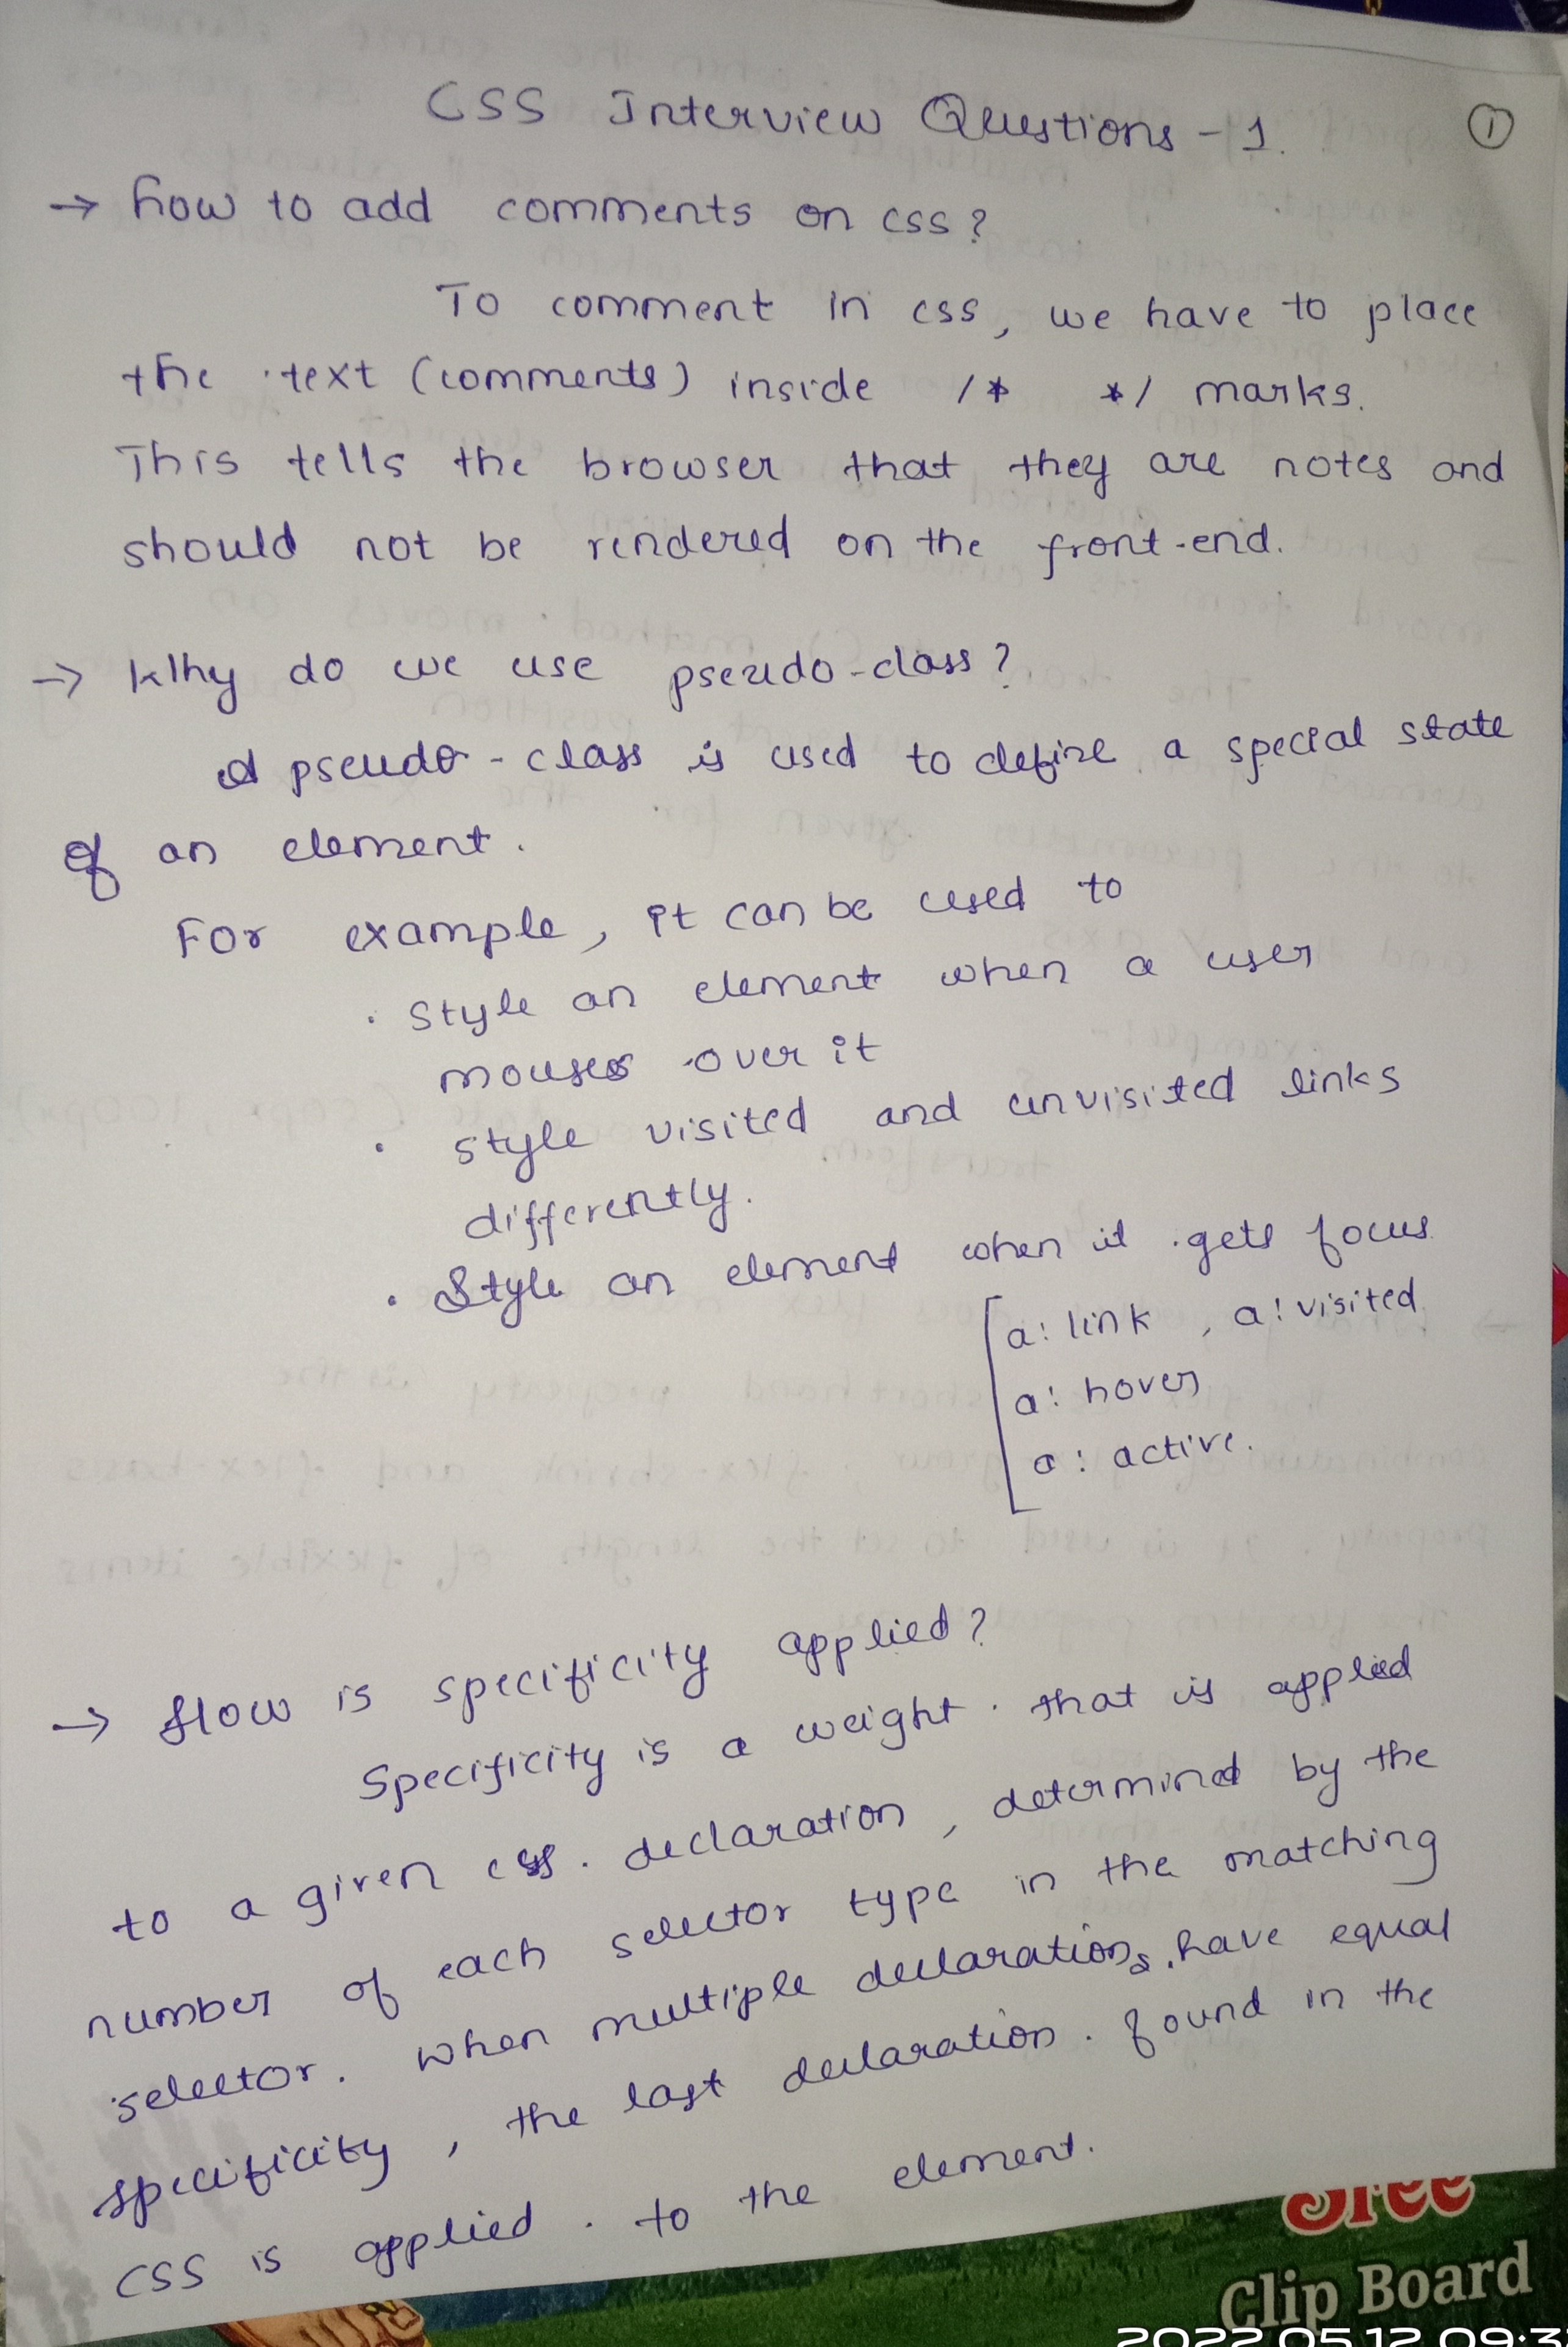 CSS Interview Questions - 1.
1
→ how to add comments on css?
To comment in css, we have to place
the text (comments) inside /* */ marks.
This tells the browser that they are notes and
should not be rendered on the front-end.
→ Why do we use pseudo-class?
A pseudo-class is used to define a special state
of an element.
For example, it can be used to
• Style an element when a user
mouses over it
• style visited and unvisited links
differently.
• Style an element when it gets focus
a: link , a: visited
a: hover
a: active.
→ How is specificity applied?
Specificity is a weight that is applied
to a given css declaration, determined by the
number of each selector type in the matching
selector. When multiple declarations have equal
specificity, the last declaration found in the
CSS is applied to the element.
Sree
Clip Board
2022.05.12 09:3